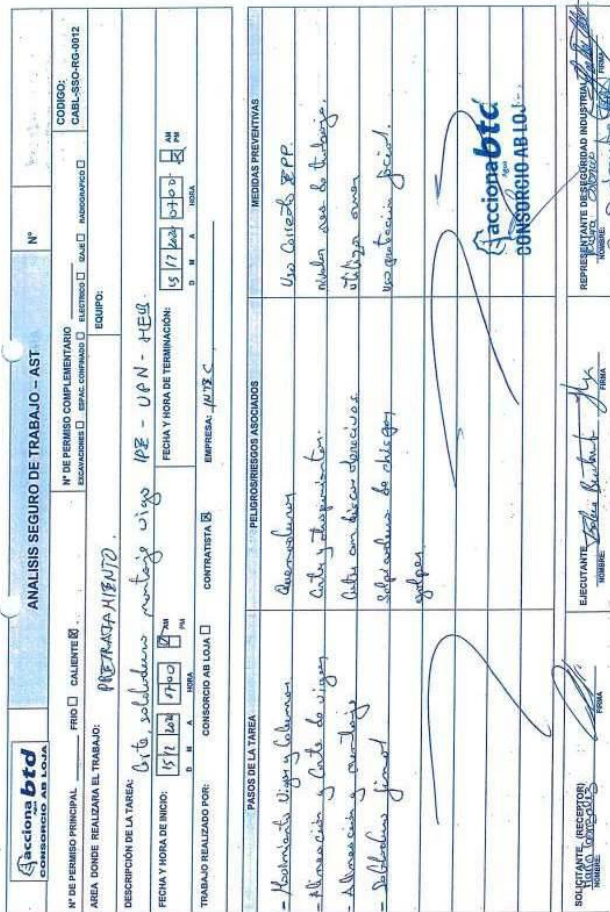 acciona btd
Agua
CONSORCIO AB LOJA
ANALISIS SEGURO DE TRABAJO – AST
N°
CODIGO:
CABL-SSO-RG-0012
N° DE PERMISO PRINCIPAL FRIO ☐ CALIENTE ☒
N° DE PERMISO COMPLEMENTARIO
EXCAVACIONES ☐ ESPAC. CONFINADO ☐ ELECTRICO ☐ IZAJE ☐ RADIOGRAFICO ☐
AREA DONDE REALIZARA EL TRABAJO: PRETRATAMIENTO.
EQUIPO:
DESCRIPCIÓN DE LA TAREA: Corte, soldadura montaje vigas IPE - UPN - HEB.
FECHA Y HORA DE INICIO: 07:00 ☒ AM
PM
D M A HORA
FECHA Y HORA DE TERMINACIÓN: 07:00 AM
☒ PM
D M A HORA
TRABAJO REALIZADO POR: CONSORCIO AB LOJA ☐ CONTRATISTA ☒ EMPRESA:
PASOS DE LA TAREA
PELIGROS/RIESGOS ASOCIADOS
MEDIDAS PREVENTIVAS
- Movimiento Vigas y Columnas
Quemaduras
Uso Correcto EPP.
- Alineación y Corte de vigas
Corte y
area de trabajo.
- Alineación y montaje
Corte con discos abrasivos
utilizar
- Soldadura final
de chispas
uso protección facial.
golpes
acciona btd
Agua
CONSORCIO AB LOJA
SOLICITANTE (RECEPTOR)
NOMBRE: FIRMA
EJECUTANTE
NOMBRE: FIRMA
REPRESENTANTE DE SEGURIDAD INDUSTRIAL
NOMBRE: FIRMA